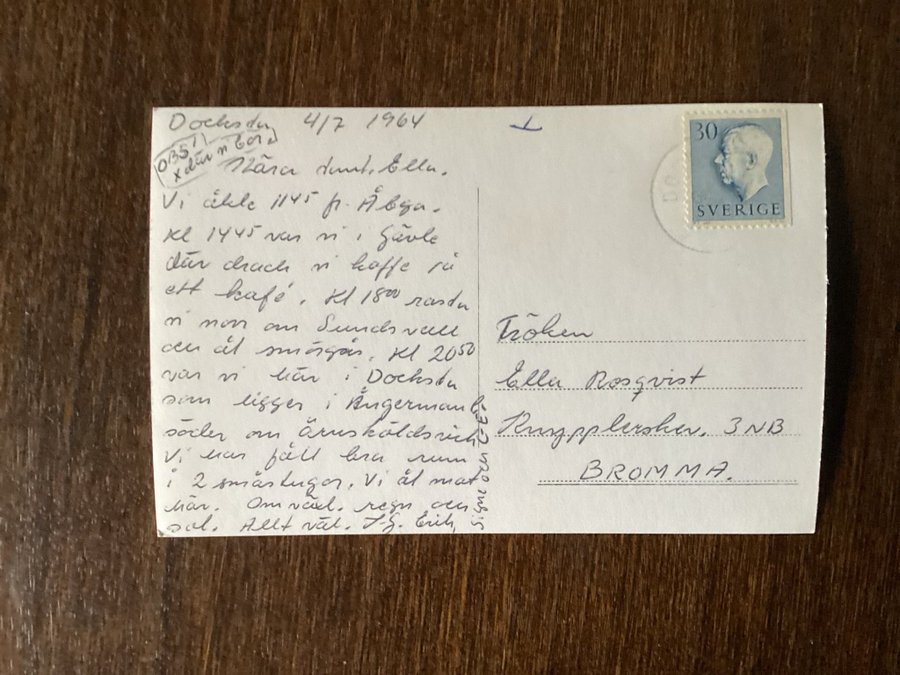 Docksta 4/7 1964
OBS!
x där vi bor
Kära tant Ella.
Vi åkte 1145 fr.
Kl 1445 var vi i Gävle
där drack vi kaffe på
ett kafé. Kl 1800 rasta
vi norr om Sundsvall
och åt smörgås. Kl 2050
var vi här i Docksta
som ligger i Ångermanl.
söder om Örnsköldsvik
Vi har fått bra rum
i 2 småstugor. Vi åt mat
här. Omväxl. regn och
sol. Allt väl. Erik,
Signe och
30
SVERIGE
Fröken
Ella Rosqvist
3 NB
BROMMA.